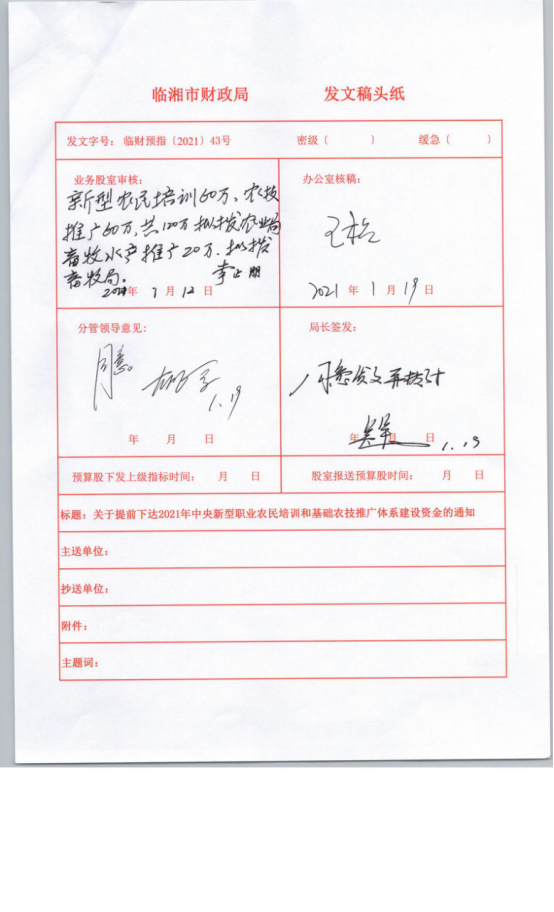 临湘市财政局 发文稿头纸
发文字号： 临财预指〔2021〕43号 密级（ ） 缓急（ ）
业务股室审核：
新型农民培训60万、农技
推广60万,共120万拟拨农业局
畜牧水产推广20万.拟拨
畜牧局.
2021年 1月12日
办公室核稿：
2021年1月19日
分管领导意见：
同意。
1.19
年 月 日
局长签发：
年 月 日
1.19
预算股下发上级指标时间： 月 日 股室报送预算股时间： 月 日
标题：关于提前下达2021年中央新型职业农民培训和基础农技推广体系建设资金的通知
主送单位：
抄送单位：
附件：
主题词：